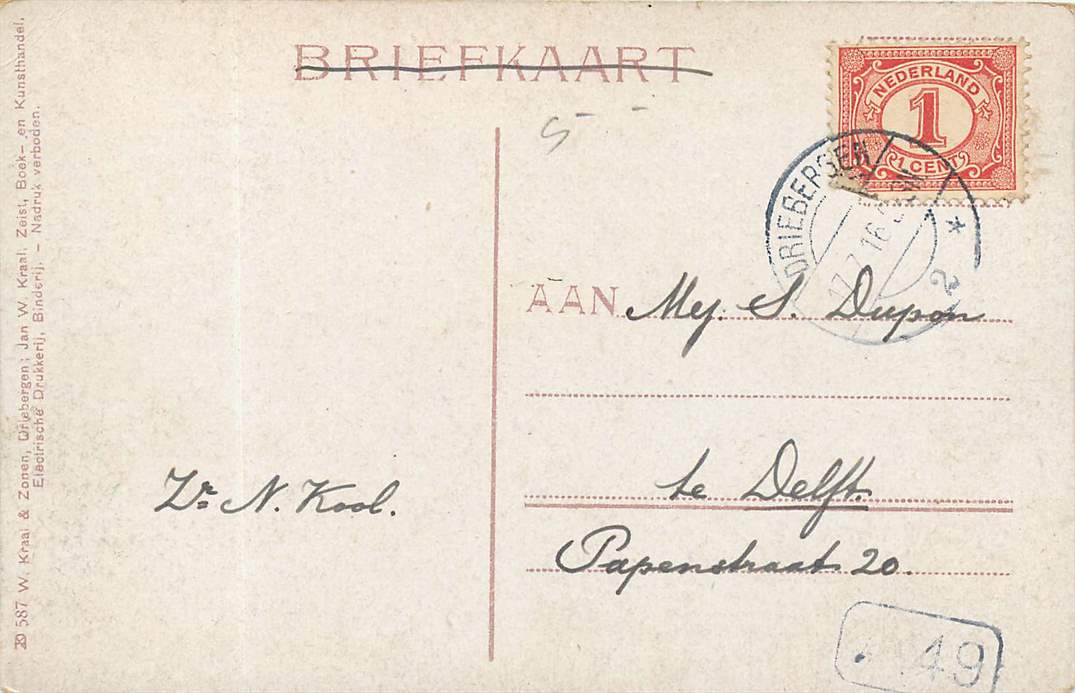 BRIEFKAART
NEDERLAND
1
1 CENT
DRIEBERGEN
7.16
2
5
AAN Mej. S. Dupon
te Delft.
Papenstraat 20.
Zr. N. Kool.
49
587 W. Kraal & Zonen, Driebergen; Jan W. Kraal, Zeist, Boek- en Kunsthandel,
Electrische Drukkerij, Binderij. - Nadruk verboden.